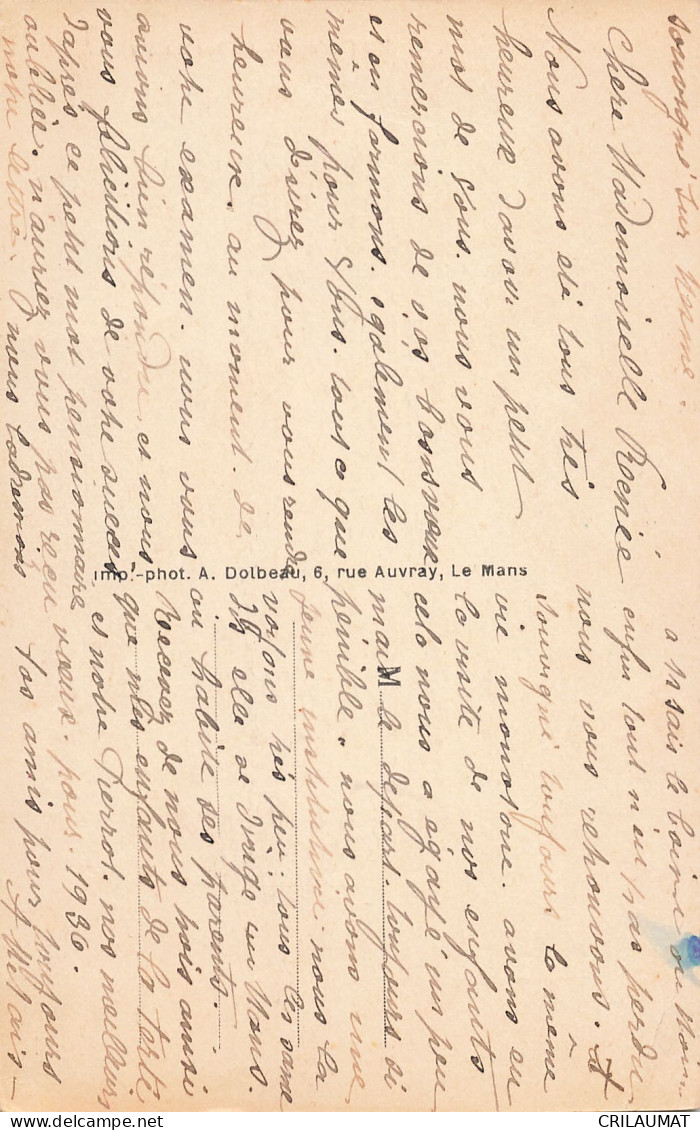 Souvigné sur Même.
Chère Mademoiselle Renée
Nous avons été tous très
heureux d'avoir un petit
mot de vous. nous vous
remercions de vos bons vœux
et en formons également les
mêmes pour vous. tout ce que
vous désirez pour vous rendre
heureux. au moment de
votre examen. nous vous
avions bien répondu et nous
vous félicitions de votre succès
d'après ce petit mot pensionnaire
oubliée. n'auriez vous pas reçu
notre lettre. nous l'adressons
a
enfin tout n'est pas perdu
nous vous retrouvons. A
Souvigné toujours la même
vie monotone. avons eu
la visite de nos enfants
cela nous a égayé un peu
mais le départ toujours si
pénible. nous avons une
jeune institutrice. nous la
voyons très peu. tous les
elle se dirige sur Mans.
ou habite ses parents.
Recevez de nous trois ainsi
que mes enfants de la Ferté
et notre Pierrot. nos meilleurs
vœux. pour. 1936.
Vos amis pour toujours
Imp.-phot. A. Dolbeau, 6, rue Auvray, Le Mans
M
CRILAUMAT